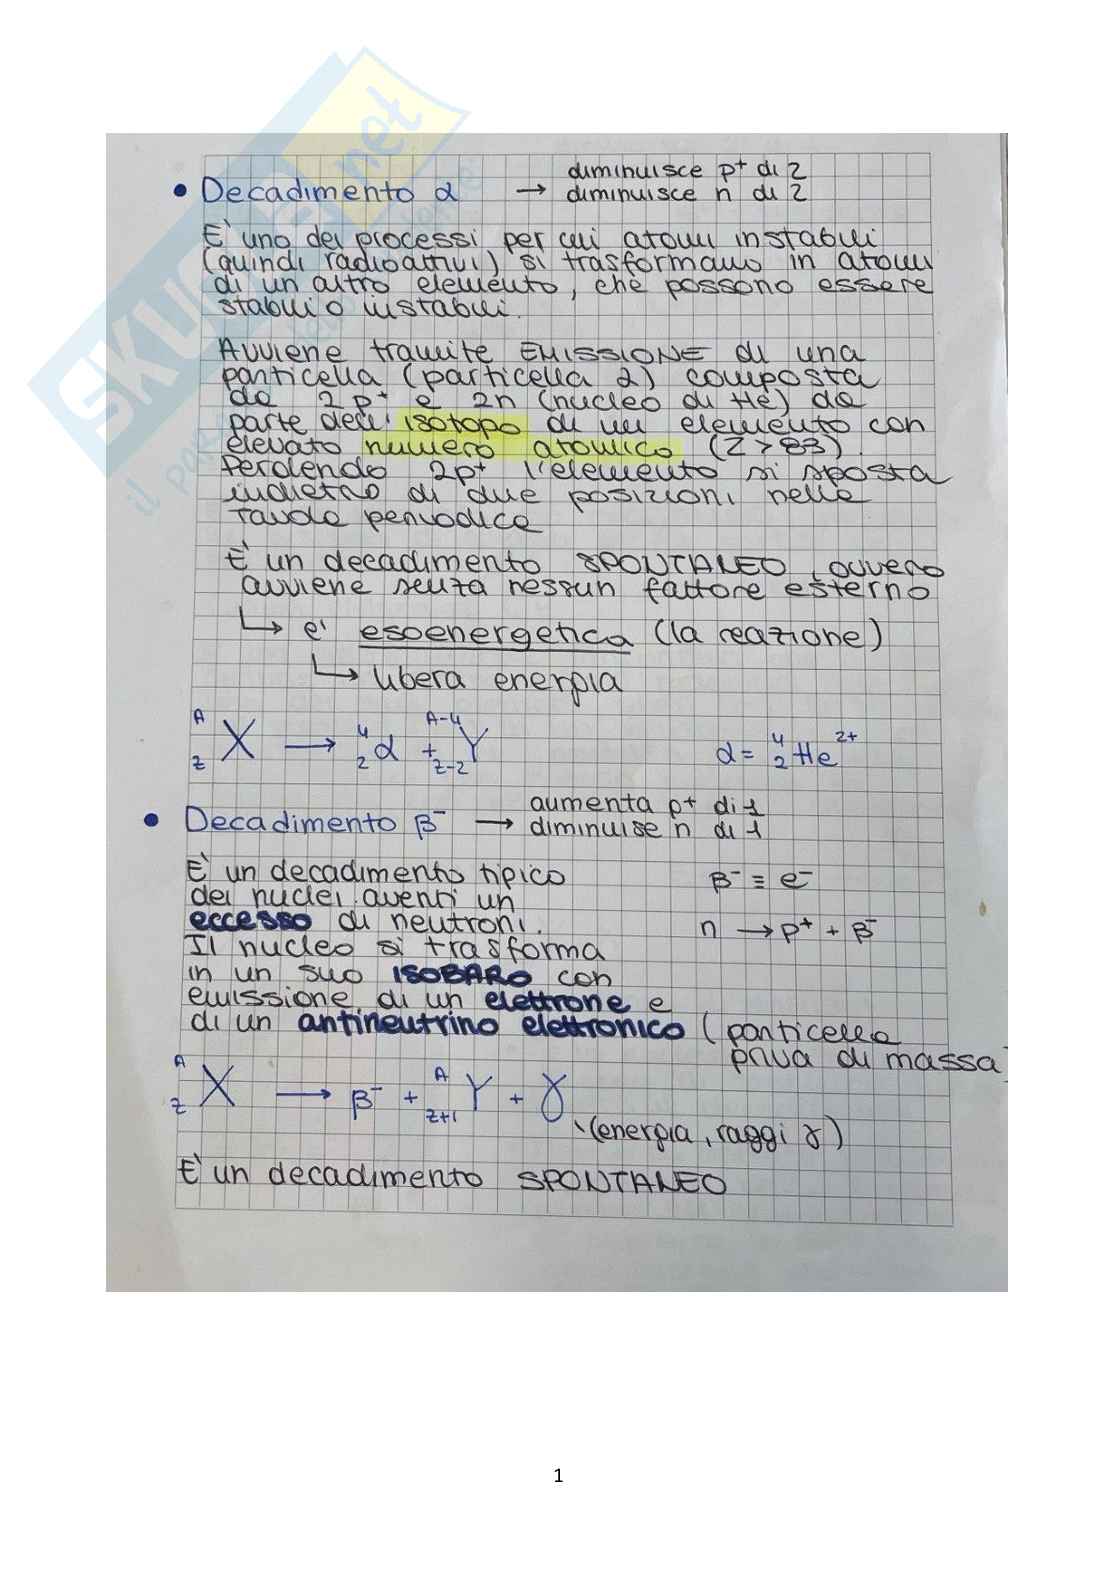 • Decadimento α → diminuisce p⁺ di 2
diminuisce n di 2
E' uno dei processi per cui atomi instabili
(quindi radioattivi) si trasformano in atomi
di un altro elemento, che possono essere
stabili o instabili.
Avviene tramite EMISSIONE di una
particella (particella α) composta
da 2p⁺ e 2n (nucleo di He) da
parte dell' isotopo di un elemento con
elevato numero atomico (Z>83).
Perdendo 2p⁺ l'elemento si sposta
indietro di due posizioni nella
tavola periodica
E' un decadimento SPONTANEO, ovvero
avviene senza nessun fattore esterno
↳ e' esoenergetica (la reazione)
↳ libera energia
ᴬ_Z X → ⁴₂α + ᴬ⁻⁴_Z-2 Y α = ⁴₂He²⁺
• Decadimento β⁻ → aumenta p⁺ di 1
diminuise n di 1
E' un decadimento tipico
dei nuclei aventi un
eccesso di neutroni.
Il nucleo si trasforma
in un suo ISOBARO con
emissione di un elettrone e
di un antineutrino elettronico (particella
priva di massa)
β⁻ ≡ e⁻
n → p⁺ + β⁻
ᴬ_Z X → β⁻ + ᴬ_Z+1 Y + γ
(energia, raggi γ)
E' un decadimento SPONTANEO
1